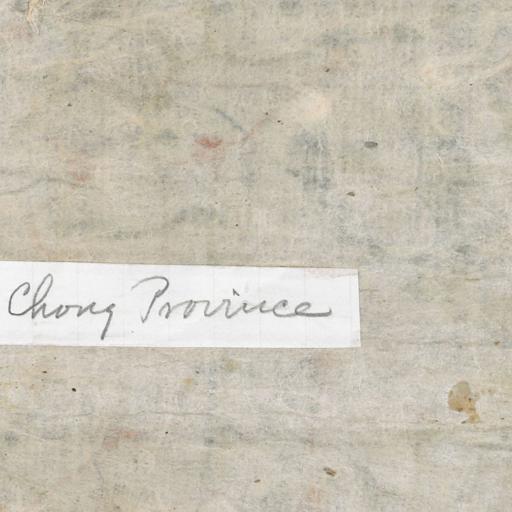 Chong Province